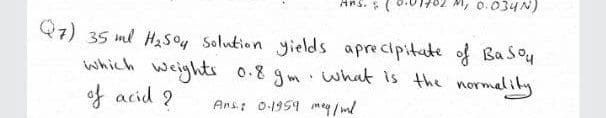 Ans. : ( 0.01702 M, 0.034N)
Q7) 35 ml H₂SO₄ solution yields a precipitate of BaSO₄
which weights 0.8 gm. what is the normality
of acid ? Ans: 0.1959 meq/ml